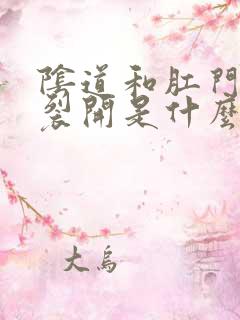 陰道和肛門
裂開是什麼
大烏